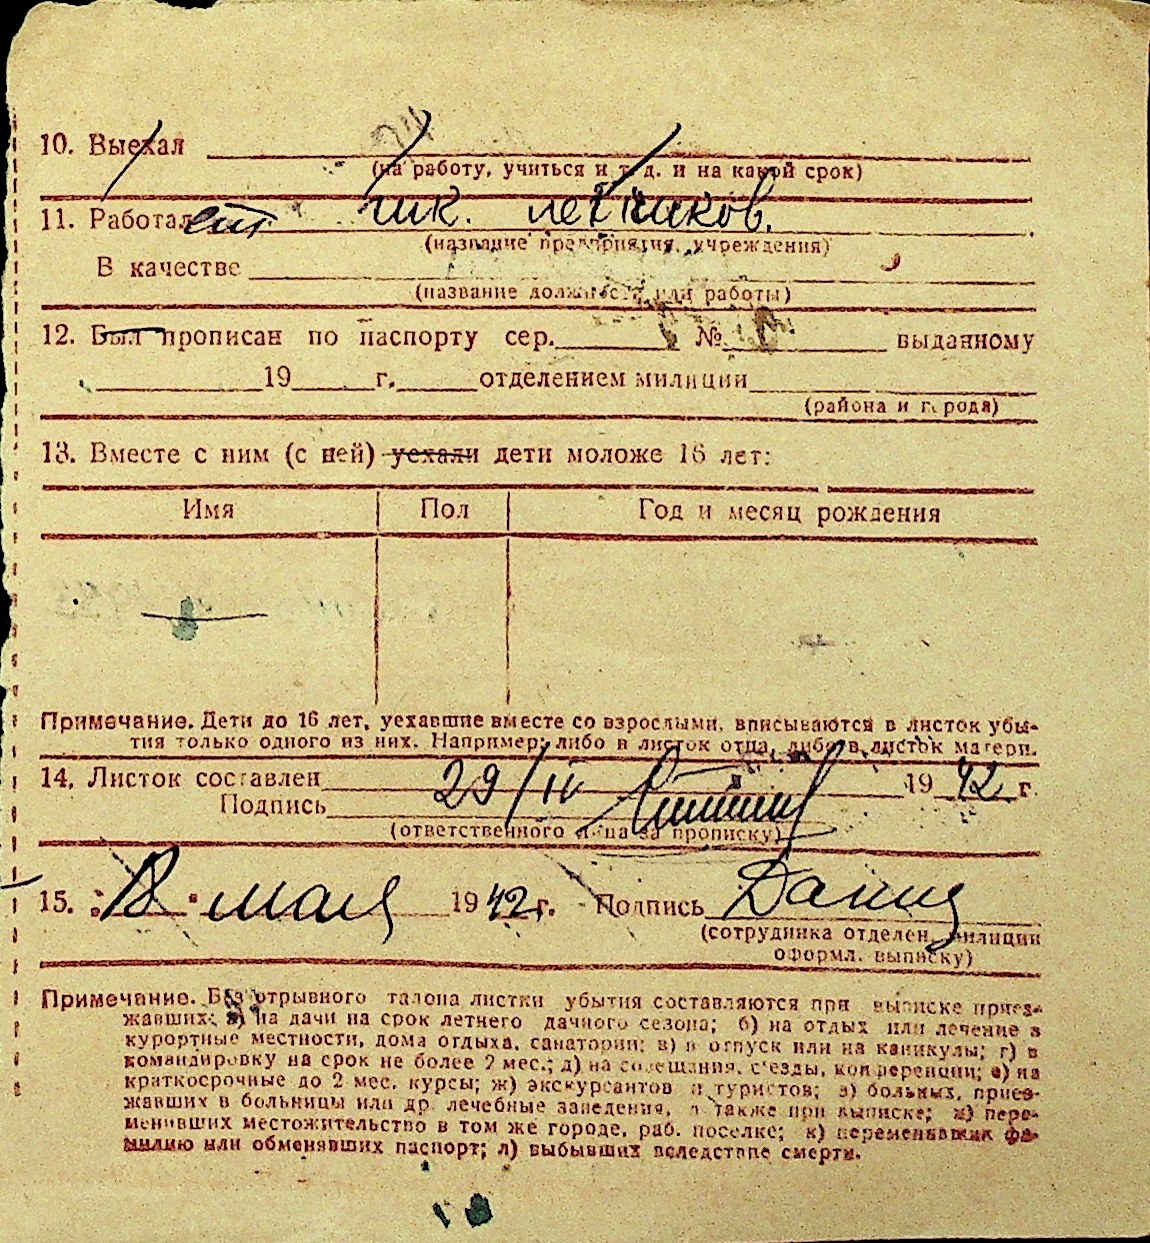 10. Выехал
(на работу, учиться и т. д. и на какой срок)
11. Работает шк. летчиков.
(название предприятия, учреждения)
В качестве
(название должности или работы)
12. Был прописан по паспорту сер. № выданному
19 г. отделением милиции
(района и города)
13. Вместе с ним (с ней) уехали дети моложе 16 лет:
Имя Пол Год и месяц рождения
Примечание. Дети до 16 лет, уехавшие вместе со взрослыми, вписываются в листок убы-
тия только одного из них. Например: либо в листок отца, либо в листок матери.
14. Листок составлен 29/IV 1942 г.
Подпись
(ответственного лица за прописку)
15. "18" мая 1942 г. Подпись
(сотрудника отделен. милиции
оформл. выписку)
Примечание. Без отрывного талона листки убытия составляются при выписке приез-
жавших: а) на дачи на срок летнего дачного сезона; б) на отдых или лечение в
курортные местности, дома отдыха, санатории; в) в отпуск или на каникулы; г) в
командировку на срок не более 2 мес.; д) на совещания, с'езды, конференции; е) на
краткосрочные до 2 мес. курсы; ж) экскурсантов и туристов; з) больных, приез-
жавших в больницы или др. лечебные заведения, а также при выписке; и) пере-
менивших местожительство в том же городе, раб. поселке; к) переменивших фа-
милию или обменявших паспорт; л) выбывших вследствие смерти.